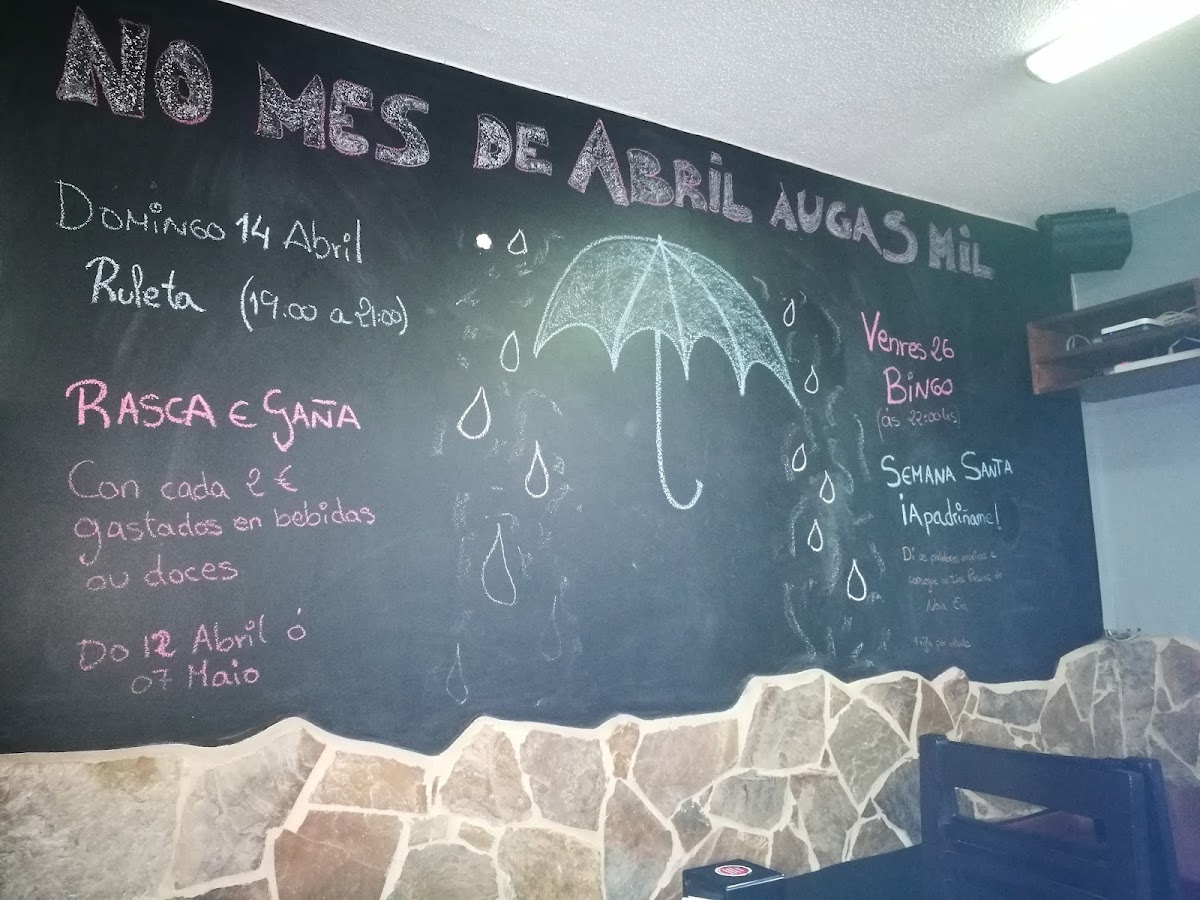 NO MES DE ABRIL AUGAS MIL
DOMINGO 14 Abril
Ruleta (19.00 a 21:00)
RASCA E GAÑA
Con cada 2 €
gastados en bebidas
ou doces
Do 12 Abril ó
07 Maio
Venres 26
BINGO
(ás 22:00 hs)
SEMANA SANTA
¡Apadriñame!
Di as palabras e
consegue de